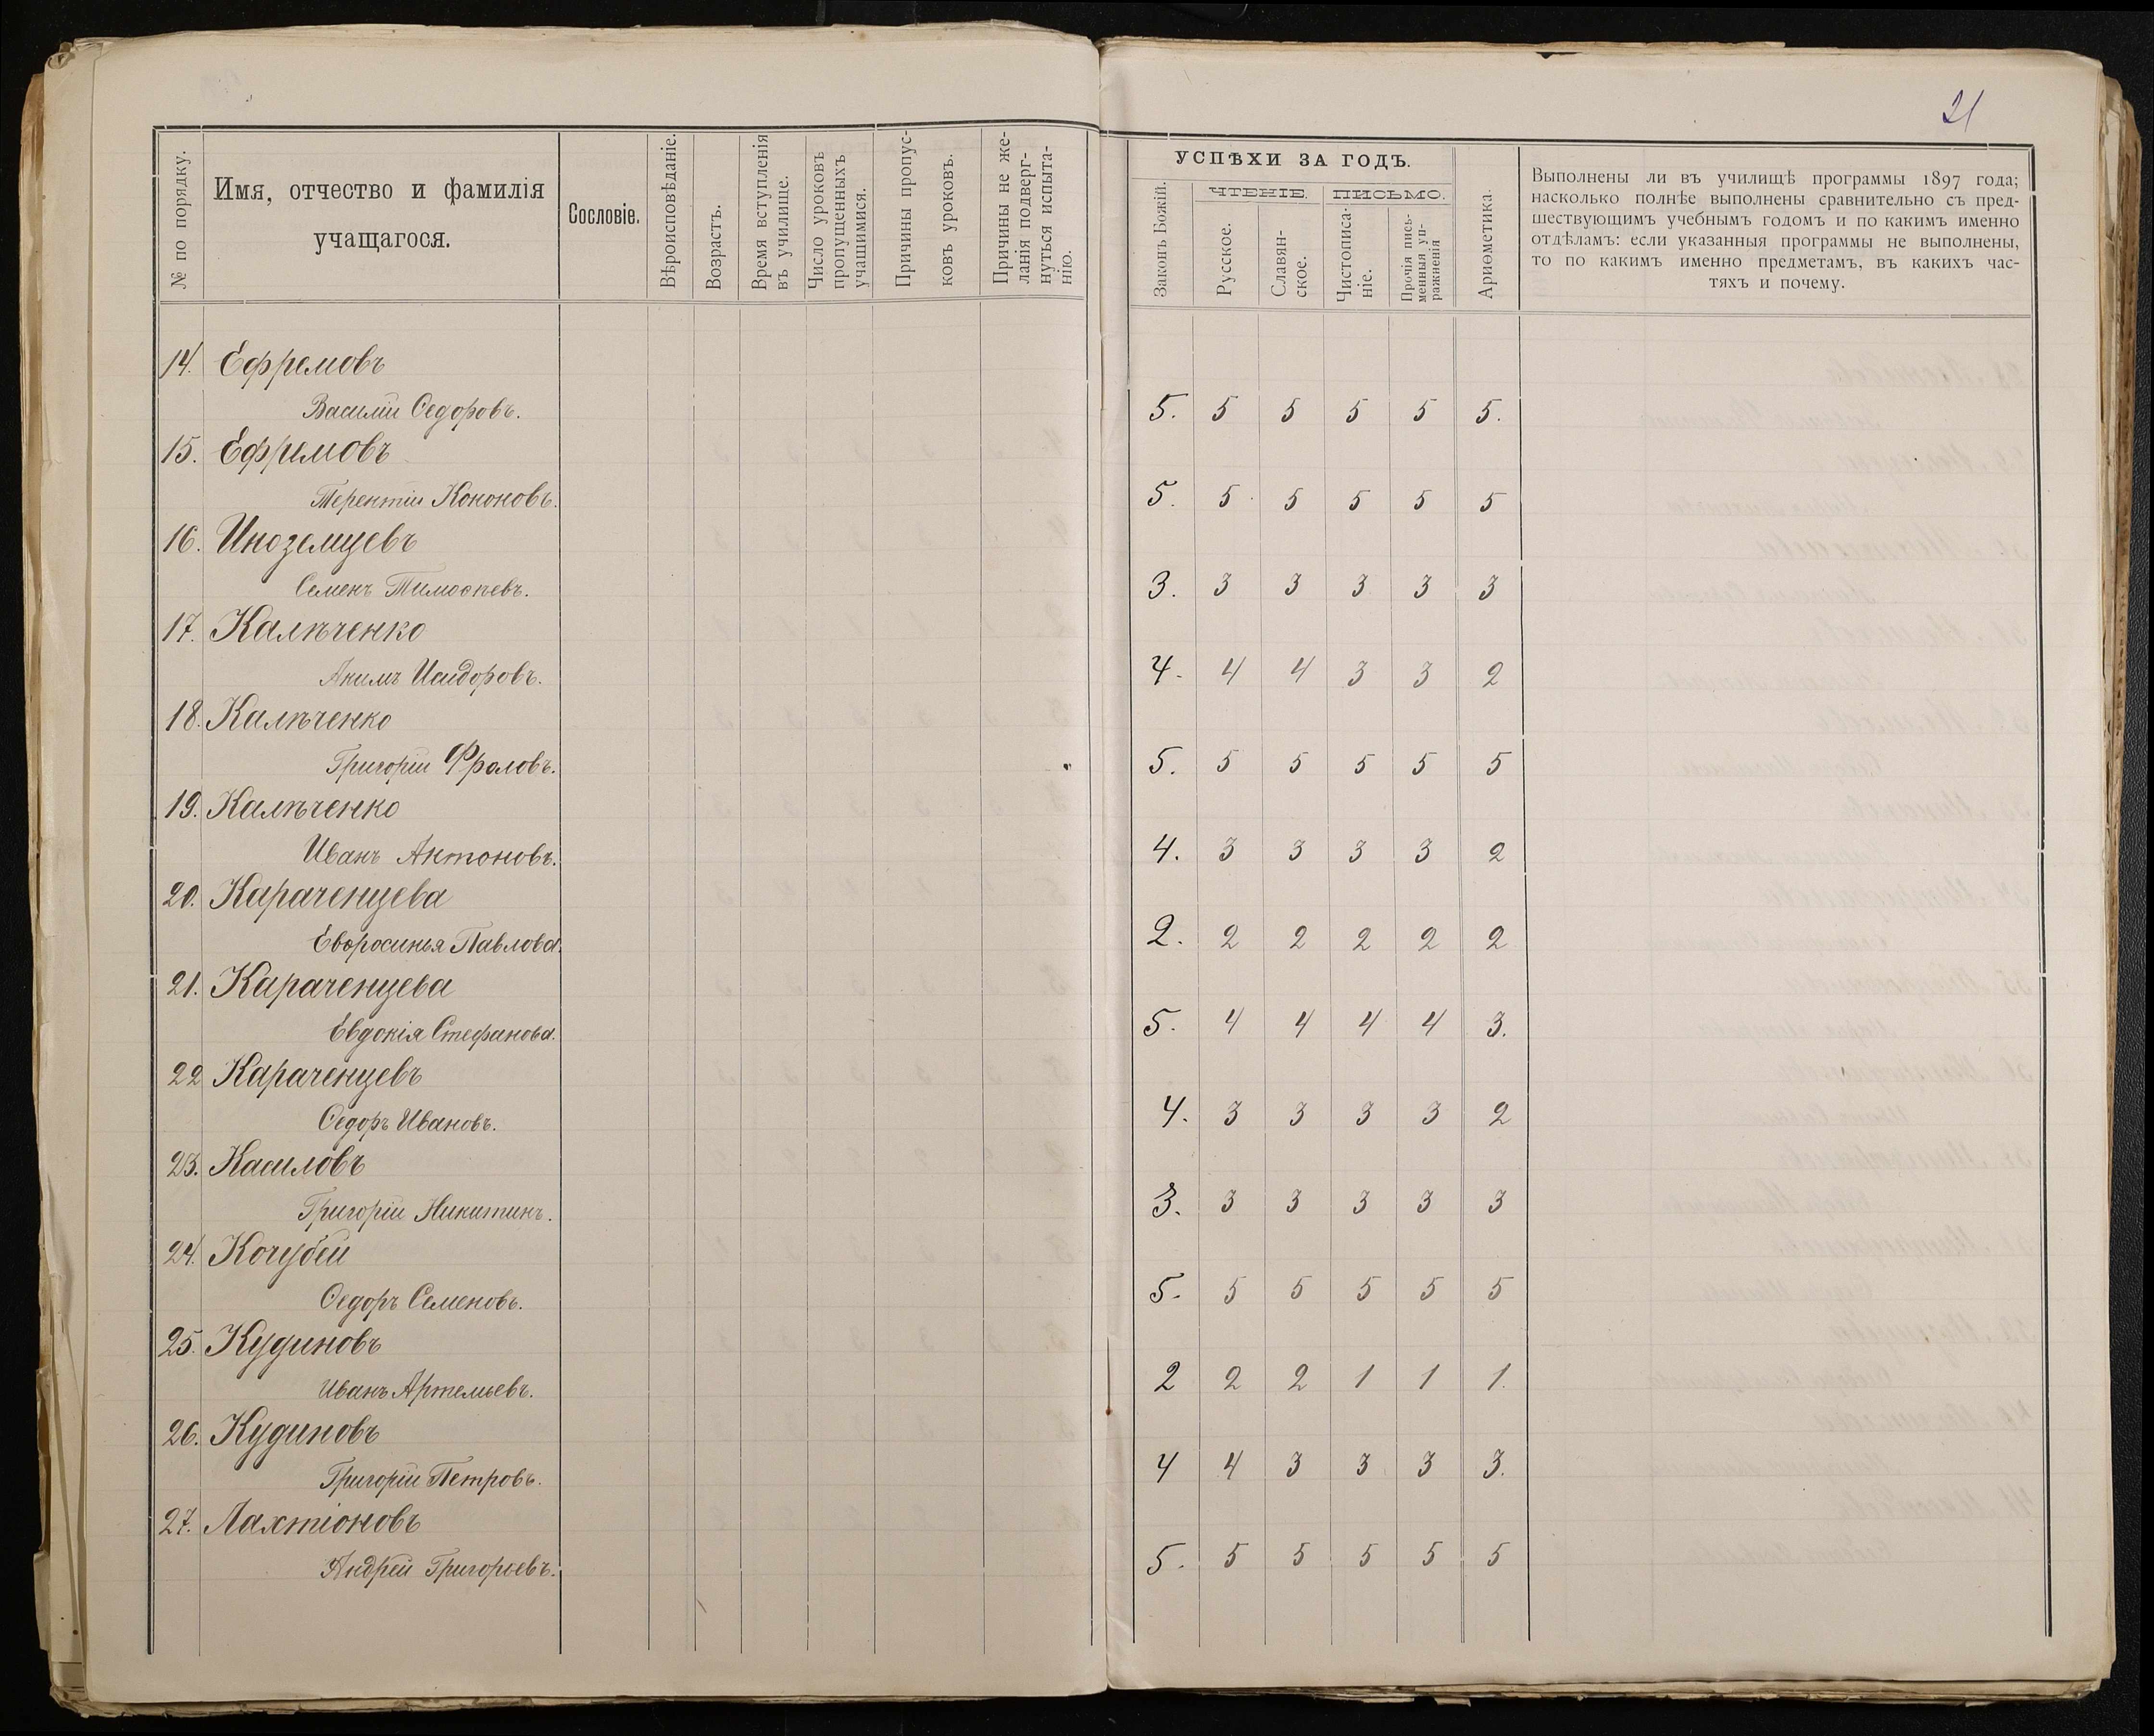 21
№ по порядку.
Имя, отчество и фамилія
учащагося.
Сословіе.
Вѣроисповѣданіе.
Возрастъ.
Время вступленія
въ училище.
Число уроковъ
пропущенныхъ
учащимися.
Причины пропус-
ковъ уроковъ.
Причины не же-
ланія подверг-
нуться испыта-
нію.
УСПѢХИ ЗА ГОДЪ.
Законъ Божій.
ЧТЕНІЕ.
Русское.
Славян-
ское.
ПИСЬМО.
Чистописа-
ніе.
Прочія пись-
менныя уп-
ражненія
Ариѳметика.
Выполнены ли въ училищѣ программы 1897 года;
насколько полнѣе выполнены сравнительно съ пред-
шествующимъ учебнымъ годомъ и по какимъ именно
отдѣламъ: если указанныя программы не выполнены,
то по какимъ именно предметамъ, въ какихъ час-
тяхъ и почему.
14. Ефремовъ
Василій Ѳедоровъ. 5. 5 5 5 5 5.
15. Ефремовъ
Терентій Кононовъ. 5. 5 5 5 5 5
16. Иноземцевъ
Семенъ Тимоѳѣевъ. 3. 3 3 3 3 3
17. Калѣченко
Акимъ Исидоровъ. 4. 4 4 3 3 2
18. Калѣченко
Григорій Фроловъ. 5. 5 5 5 5 5
19. Калѣченко
Иванъ Антоновъ. 4. 3 3 3 3 2
20. Караченцева
Евѳросинья Павлова. 2. 2 2 2 2 2
21. Караченцева
Евдокія Стефанова. 5. 4 4 4 4 3.
22 Караченцевъ
Ѳедоръ Ивановъ. 4. 3 3 3 3 2
23. Касиловъ
Григорій Никитинъ. 3. 3 3 3 3 3
24. Кочубей
Ѳедоръ Семеновъ. 5. 5 5 5 5 5
25. Кудиновъ
Иванъ Артемьевъ. 2 2 2 1 1 1.
26. Кудиновъ
Григорій Петровъ. 4 4 3 3 3 3.
27. Лахтіоновъ
Андрей Григорьевъ. 5. 5 5 5 5 5